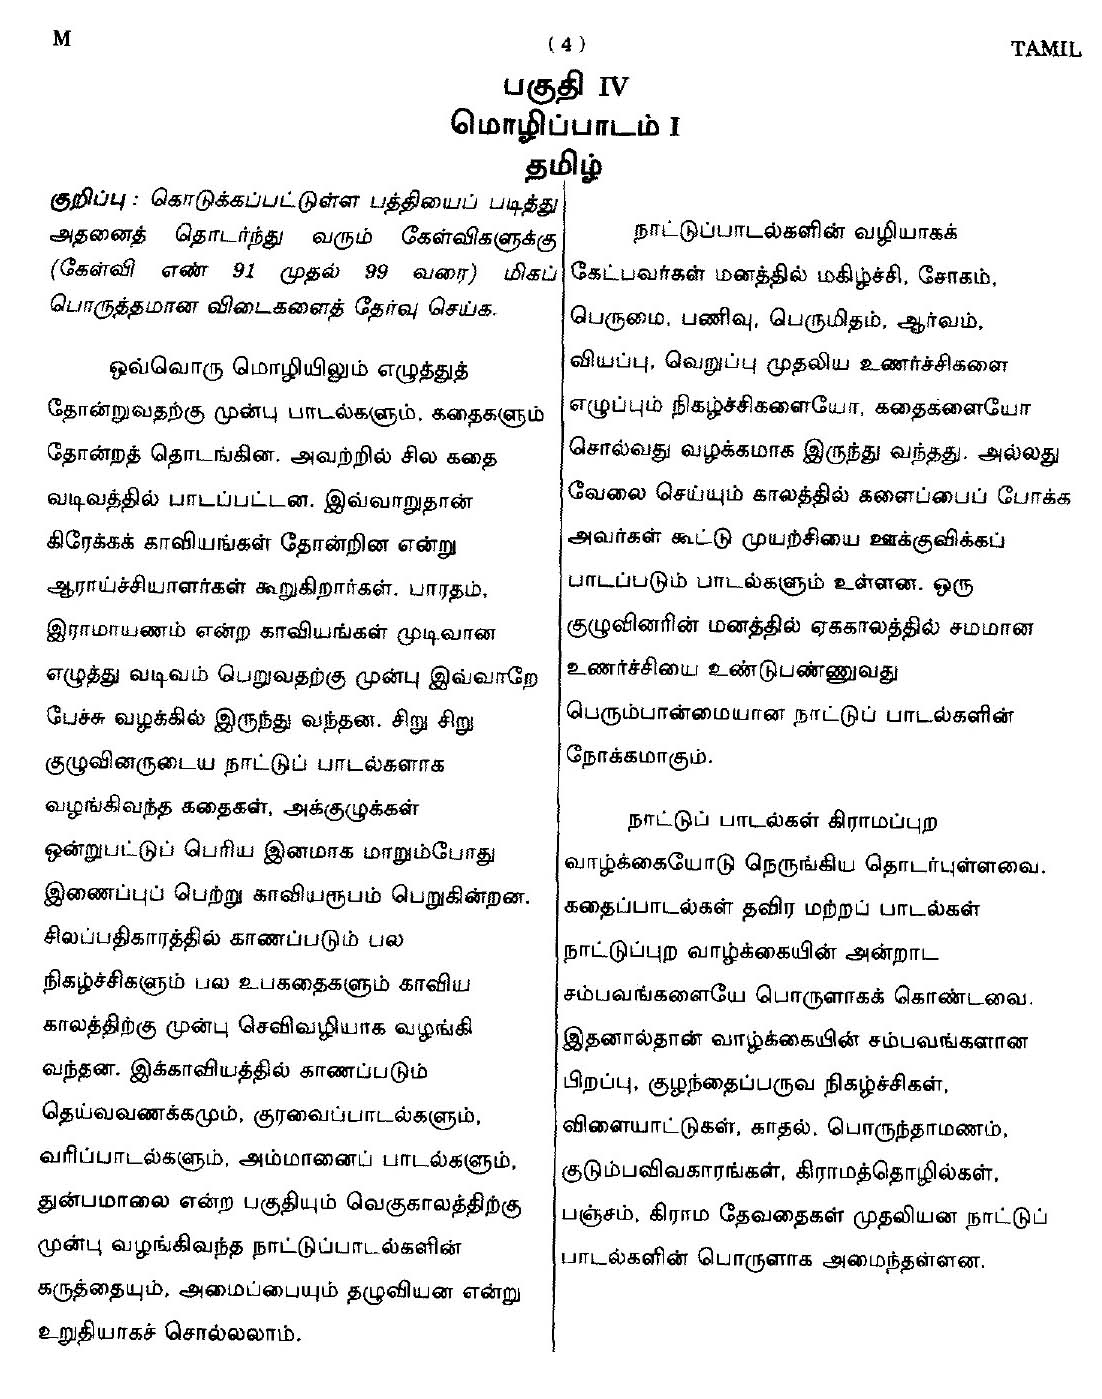 M
( 4 )
TAMIL
பகுதி IV
மொழிப்பாடம் I
தமிழ்
குறிப்பு : கொடுக்கப்பட்டுள்ள பத்தியைப் படித்து
அதனைத் தொடர்ந்து வரும் கேள்விகளுக்கு
(கேள்வி எண் 91 முதல் 99 வரை) மிகப்
பொருத்தமான விடைகளைத் தேர்வு செய்க.
ஒவ்வொரு மொழியிலும் எழுத்துத்
தோன்றுவதற்கு முன்பு பாடல்களும், கதைகளும்
தோன்றத் தொடங்கின. அவற்றில் சில கதை
வடிவத்தில் பாடப்பட்டன. இவ்வாறுதான்
கிரேக்கக் காவியங்கள் தோன்றின என்று
ஆராய்ச்சியாளர்கள் கூறுகிறார்கள். பாரதம்,
இராமாயணம் என்ற காவியங்கள் முடிவான
எழுத்து வடிவம் பெறுவதற்கு முன்பு இவ்வாறே
பேச்சு வழக்கில் இருந்து வந்தன. சிறு சிறு
குழுவினருடைய நாட்டுப் பாடல்களாக
வழங்கிவந்த கதைகள், அக்குழுக்கள்
ஒன்றுபட்டுப் பெரிய இனமாக மாறும்போது
இணைப்புப் பெற்று காவியரூபம் பெறுகின்றன.
சிலப்பதிகாரத்தில் காணப்படும் பல
நிகழ்ச்சிகளும் பல உபகதைகளும் காவிய
காலத்திற்கு முன்பு செவிவழியாக வழங்கி
வந்தன. இக்காவியத்தில் காணப்படும்
தெய்வவணக்கமும், குரவைப்பாடல்களும்,
வரிப்பாடல்களும், அம்மானைப் பாடல்களும்,
துன்பமாலை என்ற பகுதியும் வெகுகாலத்திற்கு
முன்பு வழங்கிவந்த நாட்டுப்பாடல்களின்
கருத்தையும், அமைப்பையும் தழுவியன என்று
உறுதியாகச் சொல்லலாம்.
நாட்டுப்பாடல்களின் வழியாகக்
கேட்பவர்கள் மனத்தில் மகிழ்ச்சி, சோகம்,
பெருமை, பணிவு, பெருமிதம், ஆர்வம்,
வியப்பு, வெறுப்பு முதலிய உணர்ச்சிகளை
எழுப்பும் நிகழ்ச்சிகளையோ, கதைகளையோ
சொல்வது வழக்கமாக இருந்து வந்தது. அல்லது
வேலை செய்யும் காலத்தில் களைப்பைப் போக்க
அவர்கள் கூட்டு முயற்சியை ஊக்குவிக்கப்
பாடப்படும் பாடல்களும் உள்ளன. ஒரு
குழுவினரின் மனத்தில் ஏககாலத்தில் சமமான
உணர்ச்சியை உண்டுபண்ணுவது
பெரும்பான்மையான நாட்டுப் பாடல்களின்
நோக்கமாகும்.
நாட்டுப் பாடல்கள் கிராமப்புற
வாழ்க்கையோடு நெருங்கிய தொடர்புள்ளவை.
கதைப்பாடல்கள் தவிர மற்றப் பாடல்கள்
நாட்டுப்புற வாழ்க்கையின் அன்றாட
சம்பவங்களையே பொருளாகக் கொண்டவை.
இதனால்தான் வாழ்க்கையின் சம்பவங்களான
பிறப்பு, குழந்தைப்பருவ நிகழ்ச்சிகள்,
விளையாட்டுகள், காதல், பொருந்தாமணம்,
குடும்பவிவகாரங்கள், கிராமத்தொழில்கள்,
பஞ்சம், கிராம தேவதைகள் முதலியன நாட்டுப்
பாடல்களின் பொருளாக அமைந்தள்ளன.